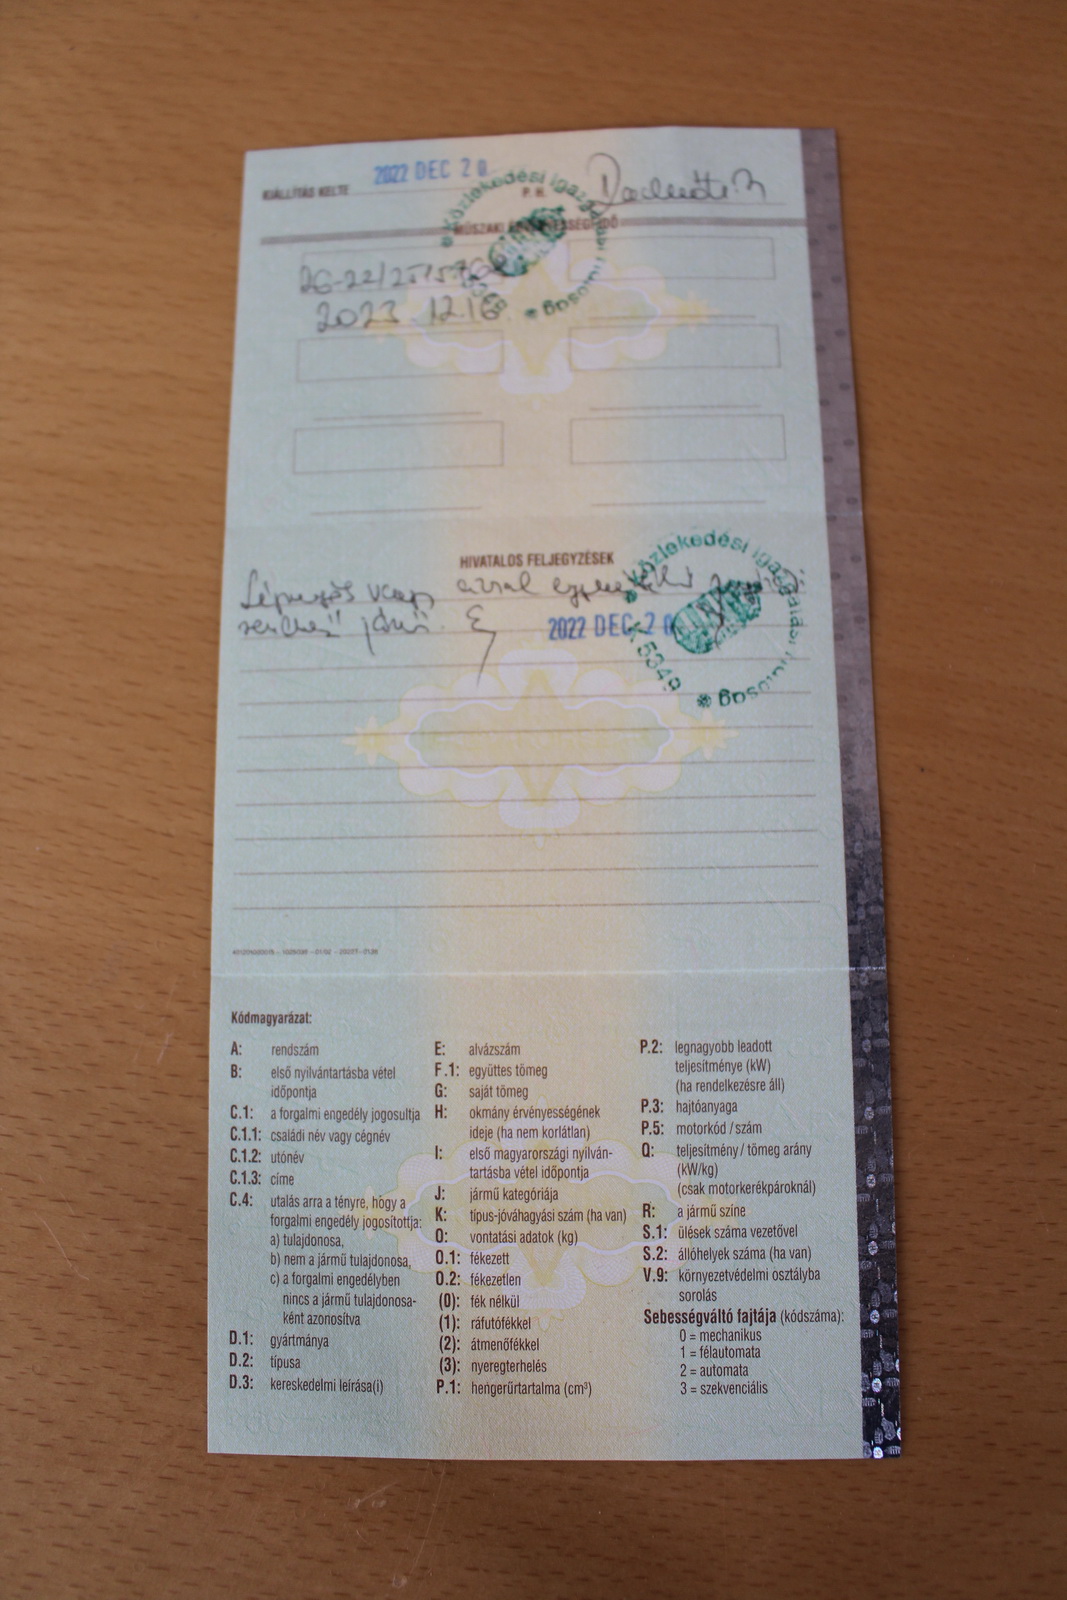 2022 DEC 20
KIÁLLÍTÁS KELTE
P. H.
MŰSZAKI ÉRVÉNYESSÉGI IDŐ
Közlekedési Igazgatási Hatóság
2023 12.16
HIVATALOS FELJEGYZÉSEK
Légrugós vagy azzal egyenértékű
jármű.
2022 DEC 20
Közlekedési Igazgatási Hatóság
K.5349
Kódmagyarázat:
A: rendszám
B: első nyilvántartásba vétel
időpontja
C.1: a forgalmi engedély jogosultja
C.1.1: családi név vagy cégnév
C.1.2: utónév
C.1.3: címe
C.4: utalás arra a tényre, hogy a
forgalmi engedély jogosítottja:
a) tulajdonosa,
b) nem a jármű tulajdonosa,
c) a forgalmi engedélyben
nincs a jármű tulajdonosa-
ként azonosítva
D.1: gyártmánya
D.2: típusa
D.3: kereskedelmi leírása(i)
E: alvázszám
F.1: együttes tömeg
G: saját tömeg
H: okmány érvényességének
ideje (ha nem korlátlan)
I: első magyarországi nyilván-
tartásba vétel időpontja
J: jármű kategóriája
K: típus-jóváhagyási szám (ha van)
O: vontatási adatok (kg)
O.1: fékezett
O.2: fékezetlen
(0): fék nélkül
(1): ráfutófékkel
(2): átmenőfékkel
(3): nyeregterhelés
P.1: hengerűrtartalma (cm³)
P.2: legnagyobb leadott
teljesítménye (kW)
(ha rendelkezésre áll)
P.3: hajtóanyaga
P.5: motorkód / szám
Q: teljesítmény / tömeg arány
(kW/kg)
(csak motorkerékpároknál)
R: a jármű színe
S.1: ülések száma vezetővel
S.2: állóhelyek száma (ha van)
V.9: környezetvédelmi osztályba
sorolás
Sebességváltó fajtája (kódszáma):
0 = mechanikus
1 = félautomata
2 = automata
3 = szekvenciális